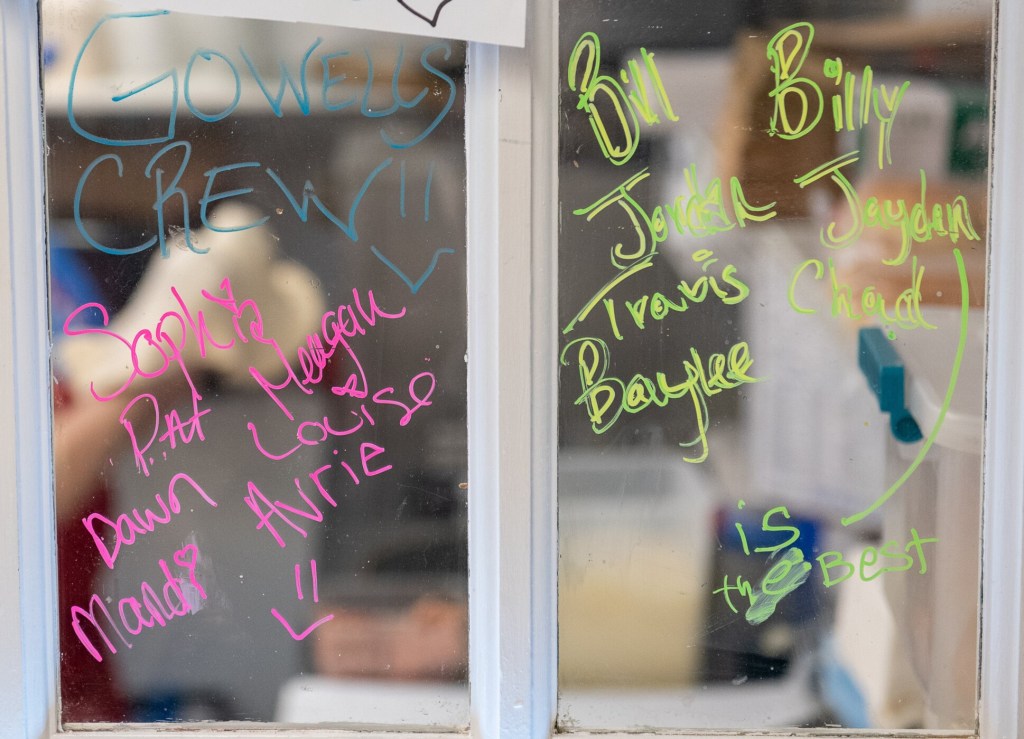 GOWELLS
CREW!!
Sophia Meagan
PAt Louise
DAwn AVrie
Mandi !!
Bill Billy
Jordan Jayden
Travis Chad
Baylee
is
the Best